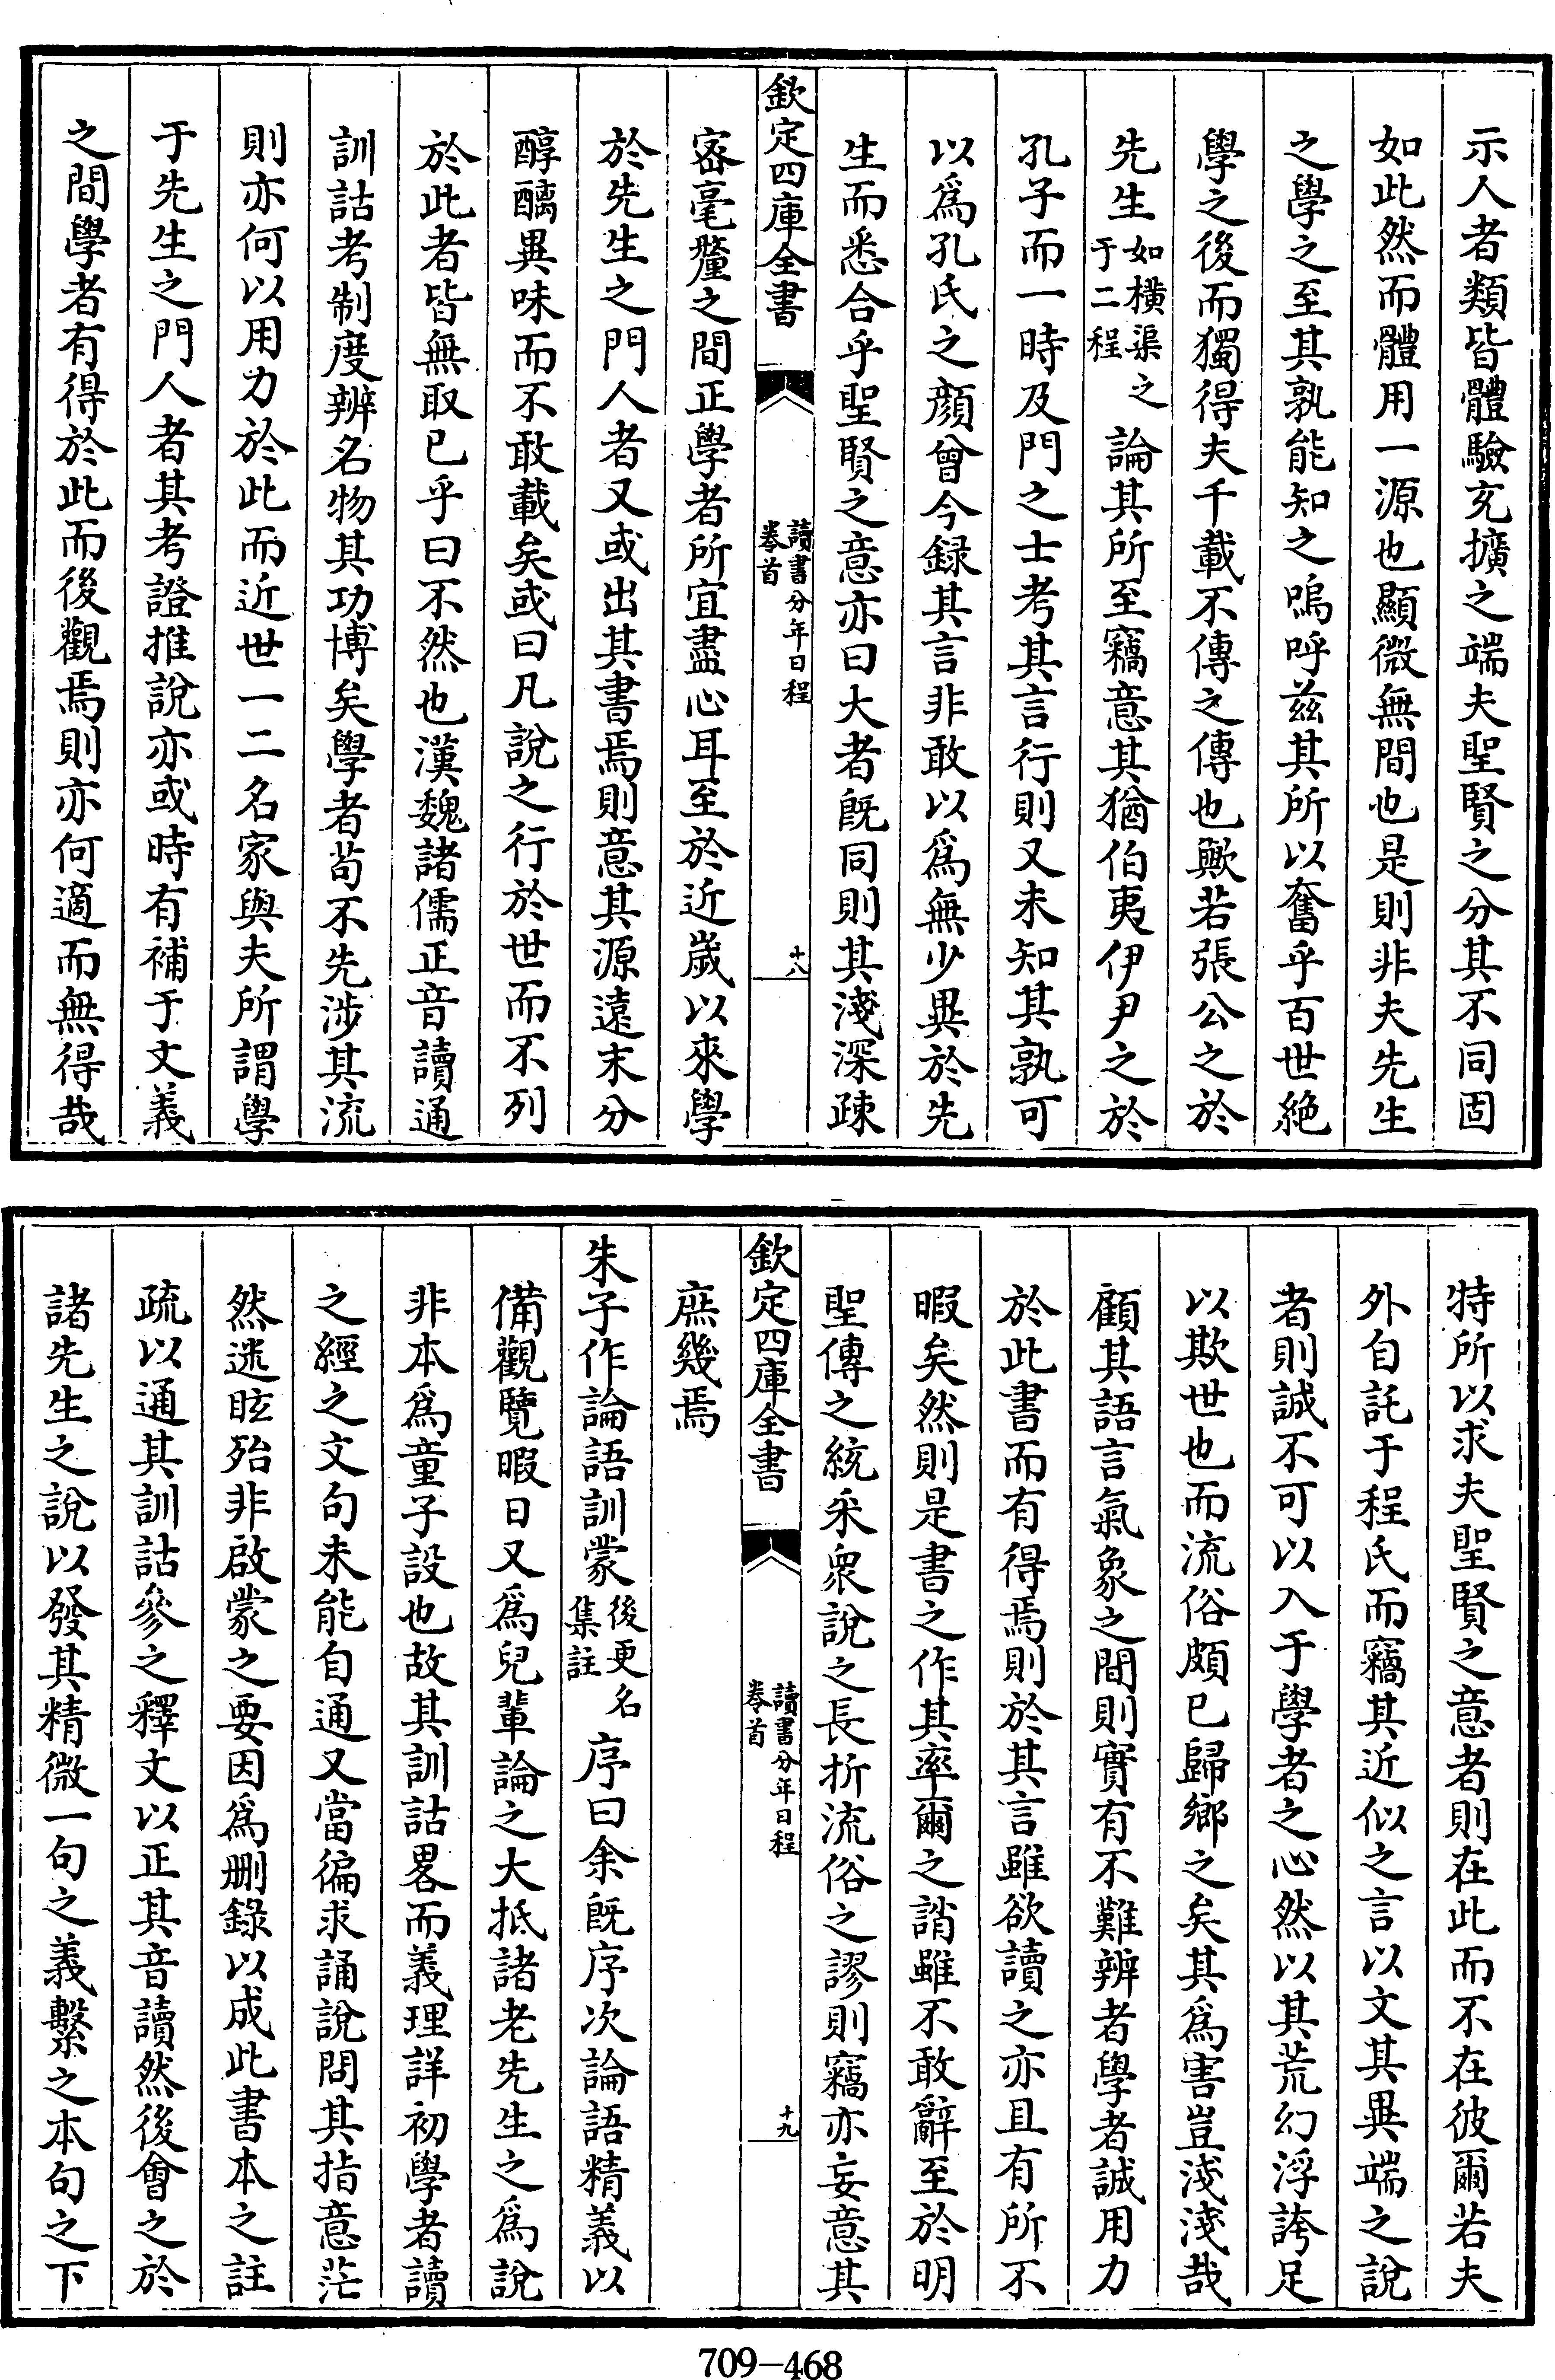 示人者類皆體驗充擴之端夫聖賢之分其不同固
如此然而體用一源也顯微無間也是則非夫先生
之學之至其孰能知之嗚呼兹其所以奮乎百世絶
學之後而獨得夫千載不傳之傳也歟若張公之於
先生如横渠之于二程論其所至竊意其猶伯夷伊尹之於
孔子而一時及門之士考其言行則又未知其孰可
以為孔氏之顔曾今録其言非敢以為無少異於先
生而悉合乎聖賢之意亦曰大者既同則其淺深疎
欽定四庫全書
讀書分年日程
卷首
十八
密毫釐之間正學者所宜盡心耳至於近嵗以來學
於先生之門人者又或出其書焉則意其源遠末分
醇醨異味而不敢載矣或曰凡說之行於世而不列
於此者皆無取已乎曰不然也漢魏諸儒正音讀通
訓詁考制度辨名物其功博矣學者茍不先涉其流
則亦何以用力於此而近世一二名家與夫所謂學
于先生之門人者其考證推說亦或時有補于文義
之間學者有得於此而後觀焉則亦何適而無得哉
特所以求夫聖賢之意者則在此而不在彼爾若夫
外自託于程氏而竊其近似之言以文其異端之說
者則誠不可以入于學者之心然以其荒幻浮誇足
以欺世也而流俗頗已歸鄉之矣其為害豈淺淺哉
顧其語言氣象之間則實有不難辨者學者誠用力
於此書而有得焉則於其言雖欲讀之亦且有所不
暇矣然則是書之作其率爾之誚雖不敢辭至於明
聖傳之統采衆說之長折流俗之謬則竊亦妄意其
欽定四庫全書
讀書分年日程
卷首
十九
庶幾焉
朱子作論語訓蒙後更名集註序曰余既序次論語精義以
備觀覽暇日又為兒輩論之大抵諸老先生之為說
非本為童子設也故其訓詁畧而義理詳初學者讀
之經之文句未能自通又當徧求誦說問其指意茫
然迷眩殆非啟蒙之要因為刪錄以成此書本之註
疏以通其訓詁參之釋文以正其音讀然後會之於
諸先生之說以發其精微一句之義繫之本句之下
709-468